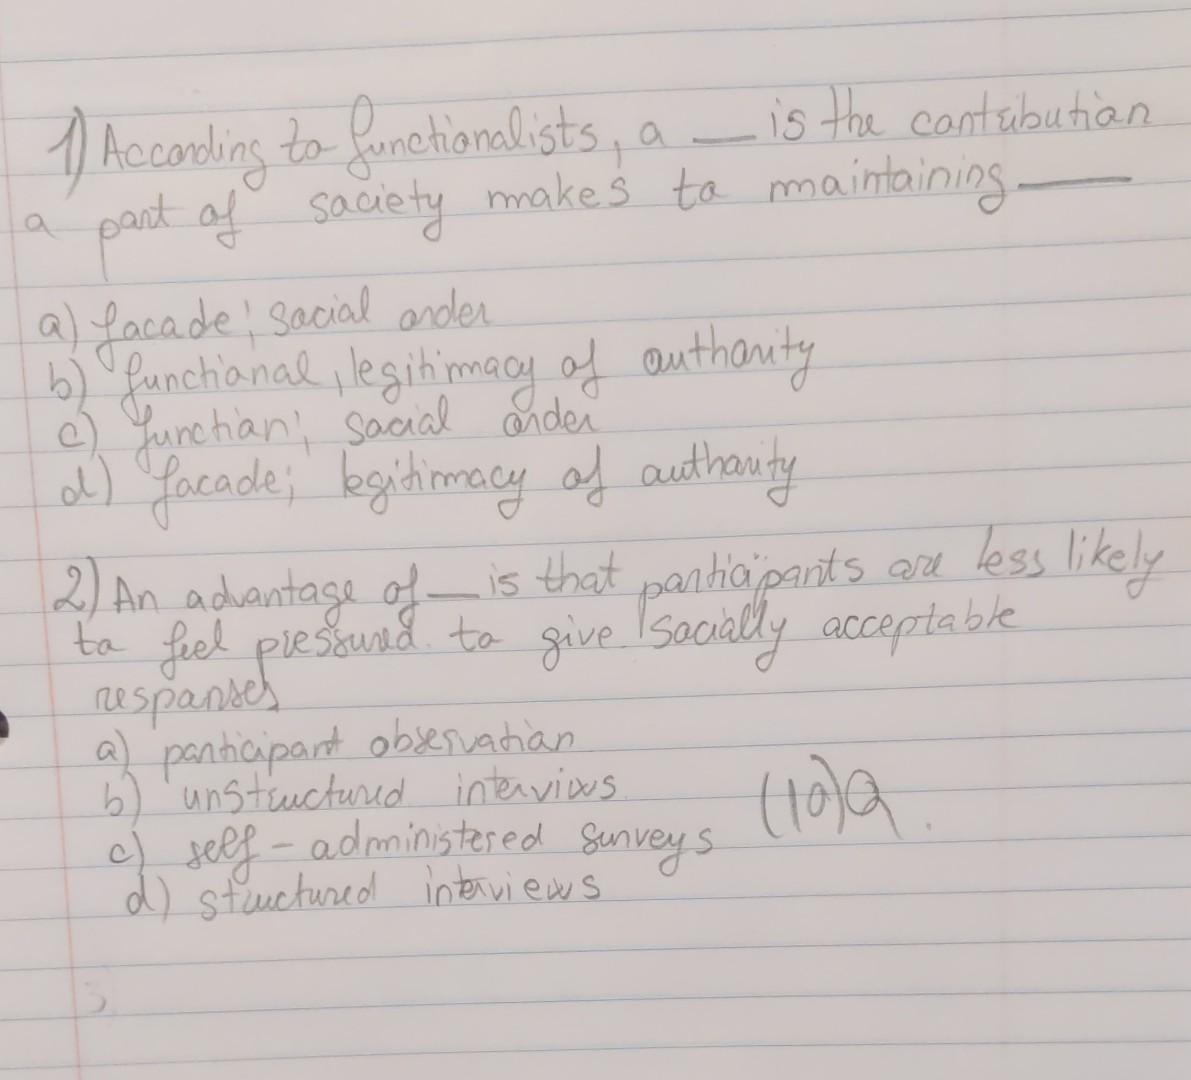 1) According to functionalists, a __ is the contribution
a part of society makes to maintaining ___
a) facade; social order
b) functional, legitimacy of authority
c) function; social order
d) facade; legitimacy of authority
2) An advantage of __ is that participants are less likely
to feel pressured to give socially acceptable
responses
a) participant observation
b) unstructured interviews
(10)Q.
c) self-administered surveys
d) structured interviews
3